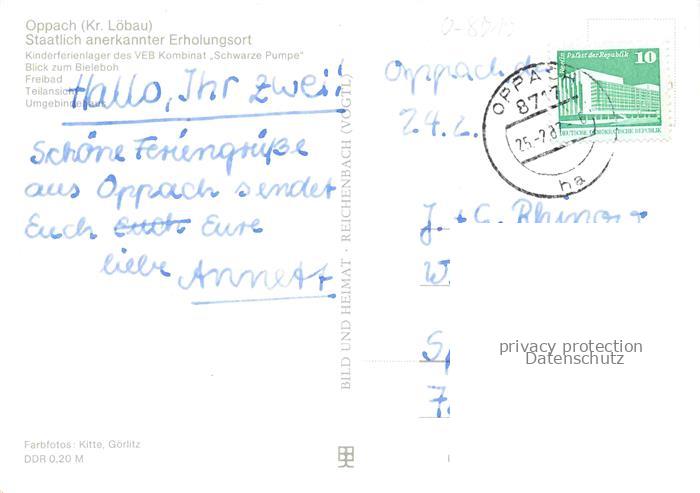 Oppach (Kr. Löbau)
Staatlich anerkannter Erholungsort
Kinderferienlager des VEB Kombinat „Schwarze Pumpe"
Blick zum Bieleboh
Freibad
Teilansicht
Umgebindehaus
Hallo, Ihr zwei!
Schöne Feriengrüße
aus Oppach sendet
Euch Euch Eure
liebe Annett
Farbfotos: Kitte, Görlitz
DDR 0,20 M
BILD UND HEIMAT · REICHENBACH (VOGTL)
Oppach, d
24.2.
J. + C.
W
Sp
7
OPPACH
8717
25.-2.87
ha
Palast der Republik 10
DEUTSCHE DEMOKRATISCHE REPUBLIK
privacy protection
Datenschutz